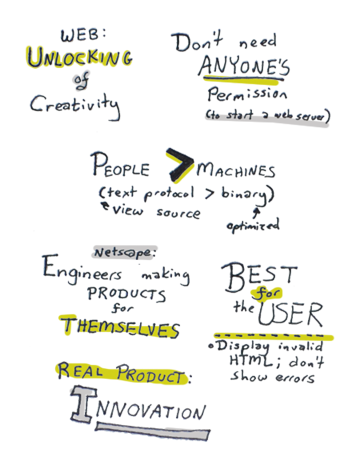 WEB:
UNLOCKING
of
Creativity
Don't need
ANYONE'S
Permission
(to start a web server)
PEOPLE > MACHINES
(text protocol > binary)
view source
optimized
Netscape:
Engineers making
PRODUCTS
for
THEMSELVES
REAL PRODUCT:
INNOVATION
BEST
for
the USER
Display invalid
HTML; don't
show errors